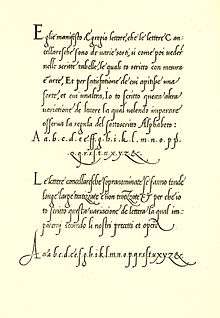 E glie manifesto Egregio lettore, che le lettere Can
cellaresche sono de varie sorti, si come poi veder
nelle scritte tabelle, le quali io scritto con misura
e arte, Et per satisfatione de cui apitisse una
sorte, et cui unaltra, Io to scritto questa altra
variatione de lettere la qual volendo imparare
osserva la regula del sottoscritto Alphabeto:
A a b c d e e f f g h i k l m n o p p
q r s t u x y z &
Le lettere cancellaresche sopranominate se fanno tonde
longe large tratizzate e non tratizzate Et per che io
to scritto questa variatione de lettera la qual im-
parerai secundo li nostri precetti et opera
A a b c d e f g h i k l m n o p q r s t u x y z &